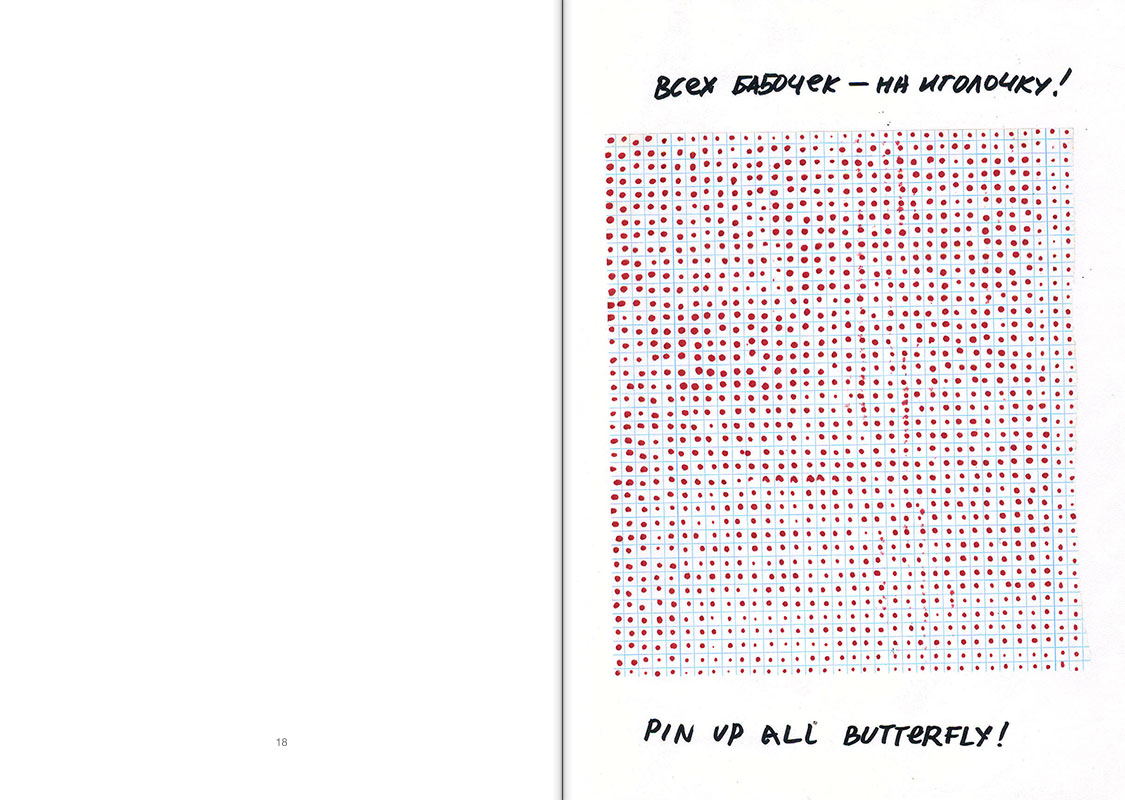 18
Всех бабочек — на иголочку!
PIN UP ALL BUTTERFLY!